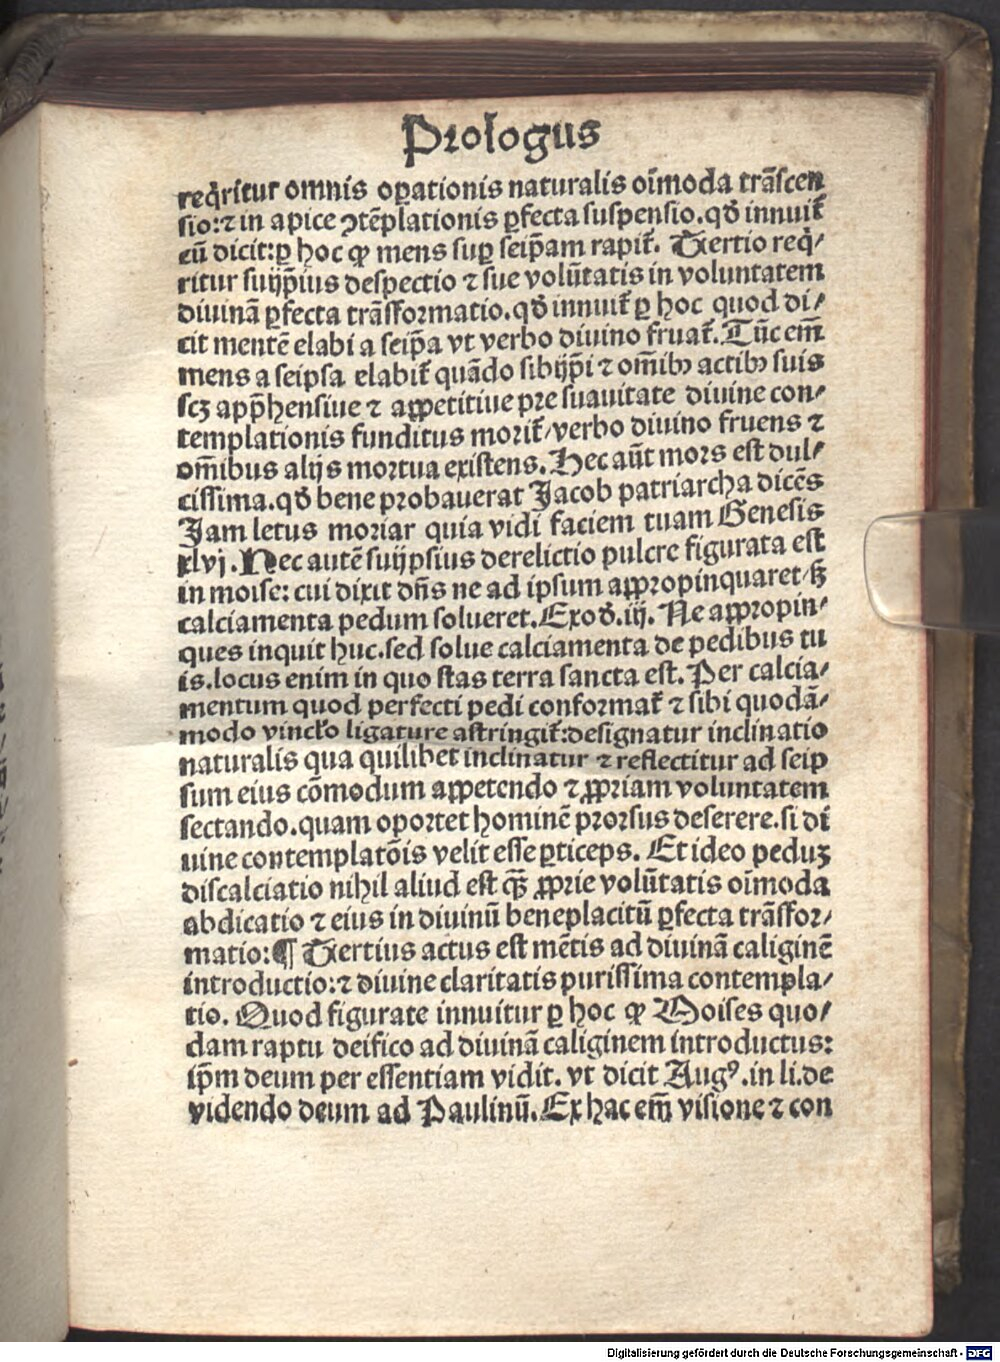 Prologus
req̄ritur omnis oꝑationis naturalis oīmoda trāſcen
ſio:⁊ in apice ꝯtēplationis ꝑfecta ſuſpenſio.qđ innuit̄
cū dicit:ꝑ hoc ꝙ mens ſuꝑ ſeip̄am rapit̄. Tertio req̄/
ritur ſuijp̄ius deſpectio ⁊ ſue volūtatis in voluntatem
diuinā ꝑfecta trāſſoꝛmatio.qđ innuit̄ ꝑ hoc quod di/
cit mentē elabi a ſeip̄a vt verbo diuino fruat̄.Tūc em̄
mens a ſeipſa elabit̄ quādo ſibijp̄i ⁊ om̄ibꝰ actibꝰ ſuis
ſcꝫ app̄henſiue ⁊ appetitiue pre ſuauitate diuine con/
templationis funditus morit̄/verbo diuino fruens ⁊
om̄ibus alijs mortua exiſtens.Hec aūt mors eſt dul/
ciſſima.qđ bene probauerat Jacob patriarcha dicēs
Jam letus moriar quia vidi faciem tuam Geneſis
xlvj.Nec autē ſuijpſius derelictio pulcre figurata eſt
in moiſe: cui dixit dn̄s ne ad ipſum appropinquaret/ſꝫ
calciamenta pedum ſolueret.Exođ.iij. Ne appropin/
ques inquit huc.ſed ſolue calciamenta de pedibus tu
is.locus enim in quo ſtas terra ſancta eſt.Per calcia/
mentum quod perfecti pedi conformat̄ ⁊ ſibi quodā/
modo vincło ligature aſtringit̄:deſignatur inclinatio
naturalis qua quilibet inclinatur ⁊ reflectitur ad ſeip
ſum eius cōmodum appetendo ⁊ ꝓpriam voluntatem
ſectando.quam opoꝛtet hominē pꝛoꝛſus deſerere.ſi di
uine contemplatōis velit eſſe ꝑticeps. Et ideo peduꝫ
diſcalciatio nihil aliud eſt qꝫ̄ ꝓprie volūtatis oīmoda
abdicatio ⁊ eius in diuinū beneplacitū ꝑfecta trāſfoꝛ/
matio:¶ Tertius actus eſt mētis ad diuinā caliginē
introductio:⁊ diuine claritatis puriſſima contempla/
tio. Quod figurate innuitur ꝑ hoc ꝙ Moiſes quo/
dam raptu deifico ad diuinā caliginem introductus:
ip̄m deum per eſſentiam vidit. vt dicit Augꝰ.in li.de
videndo deum ad Paulinū.Ex hac em̄ viſione ⁊ con
Digitalisierung gefördert durch die Deutsche Forschungsgemeinschaft - DFG